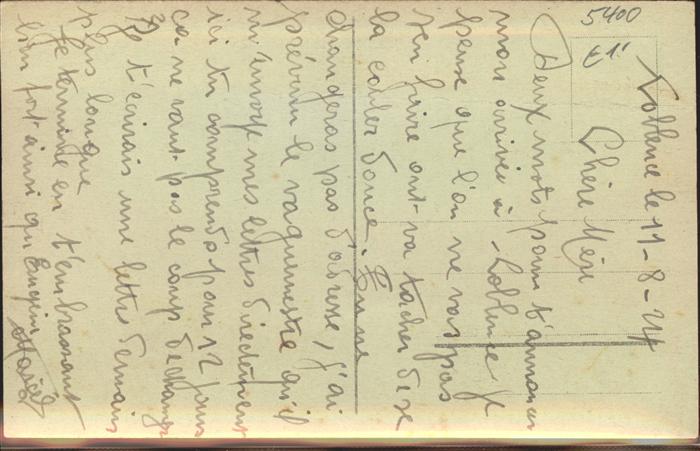 5400
E1"
Coblence le 11-8-24
Chère Mère
Deux mots pour t'annoncer
mon arrivée à Coblence je
pense que l'on ne vas pas
s'en faire ont va tacher de se
la couler douce. Tu ne
changeras pas d'adresse, j'ai
prévenu le vaguemestre qu'il
m'envoye mes lettres directement
ici tu comprends pour 12 jours
ca ne vaut pas le coup de changer
Je t'écrirais une lettre demain
plus longue
Je termine en t'embrassant
bien fort ainsi qu'Eugène